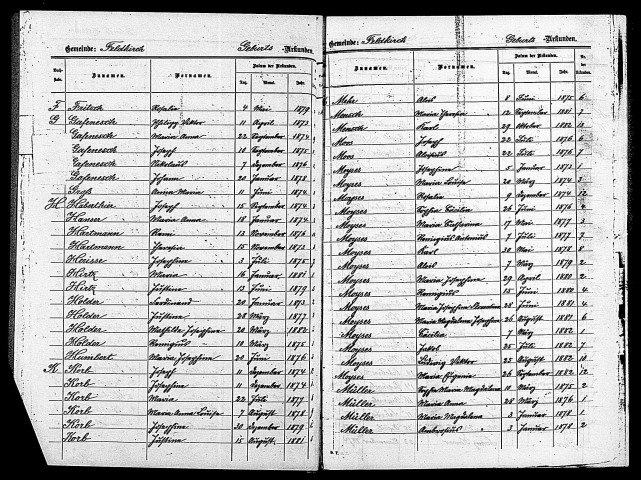 Gemeinde: Feldkirch Geburts-Urkunden.
Buchstabe. Zunamen. Vornamen. Datum der Urkunden.
Tag. Monat. Jahr.
F Fritsch Rosalia 4 Mai 1879
G Gasenesch Philipp Viktor 11 April 1873
Gasenesch Maria Anna 22 September 1874
Gasenesch Joseph 10 September 1875
Gasenesch 7 Dezember 1876
Gasenesch Johann 20 Januar 1878
Groß Anna Maria 11 Juni 1874
H Joseph 15 September 1874
Hanser Maria Anna 18 Januar 1874
Hartmann 13 November 1876
Hartmann 15 November 1873
Heisse Josephina 3 Juli 1875
Hirtz Maria 16 Januar 1881
Hirtz Justina 13 Juni 1879
Holder Ferdinand 20 Januar 1873
Holder Justina 28 März 1877
Holder Mathilde Josephina 20 März 1882
Holder Remigius 10 März 1875
Humbert Maria Josephina 20 Juni 1876
K Korb Joseph 11 Dezember 1874
Korb Josephina 11 Dezember 1874
Korb Maria 22 Juli 1877
Korb Maria Anna Louise 7 August 1878
Korb Josephina 30 Dezember 1879
Korb Justina 15 August 1881
Gemeinde: Feldkirch Geburts-Urkunden.
Zunamen. Vornamen. Datum der Urkunden.
Tag. Monat. Jahr.
Mehr Alois 8 Juni 1875 6
Mensch Maria Theresia 12 September 1881 7
Mensch Karl 29 Oktober 1882 10
Moos Joseph 22 Juli 1876 6
Moos Aloisius 22 Juli 1876 7
Moyses Josephina 5 Januar 1873 1
Moyses Maria Louise 20 März 1874 3
Moyses Rosalia 9 Dezember 1874 12
Moyses Sophia Cäcilia 26 Juni 1876
Moyses Maria Catharina 17 Mai 1877 3
Moyses Remigius Antonius 7 Juli 1877 7
Moyses Karl 30 Mai 1878 8
Moyses Alois 7 März 1879 2
Moyses Maria Josephina 29 April 1880 2
Moyses Remigius 15 Juni 1880 4
Moyses Maria Josephina 28 Juni 1881 4
Moyses Maria Magdalena Josephina 26 August 1881 6
Moyses Cäcilia 7 März 1882 1
Moyses Jakob 25 Juli 1882 7
Moyses Ludwig Viktor 23 August 1882 10
Moyses Maria Eugenia 26 September 1882 12
Müller Sophia Maria Magdalena 10 März 1875 2
Müller Maria Anna 28 März 1876 1
Müller Maria Magdalena 3 Januar 1878 1
Müller Ambrosius 3 Januar 1878 2